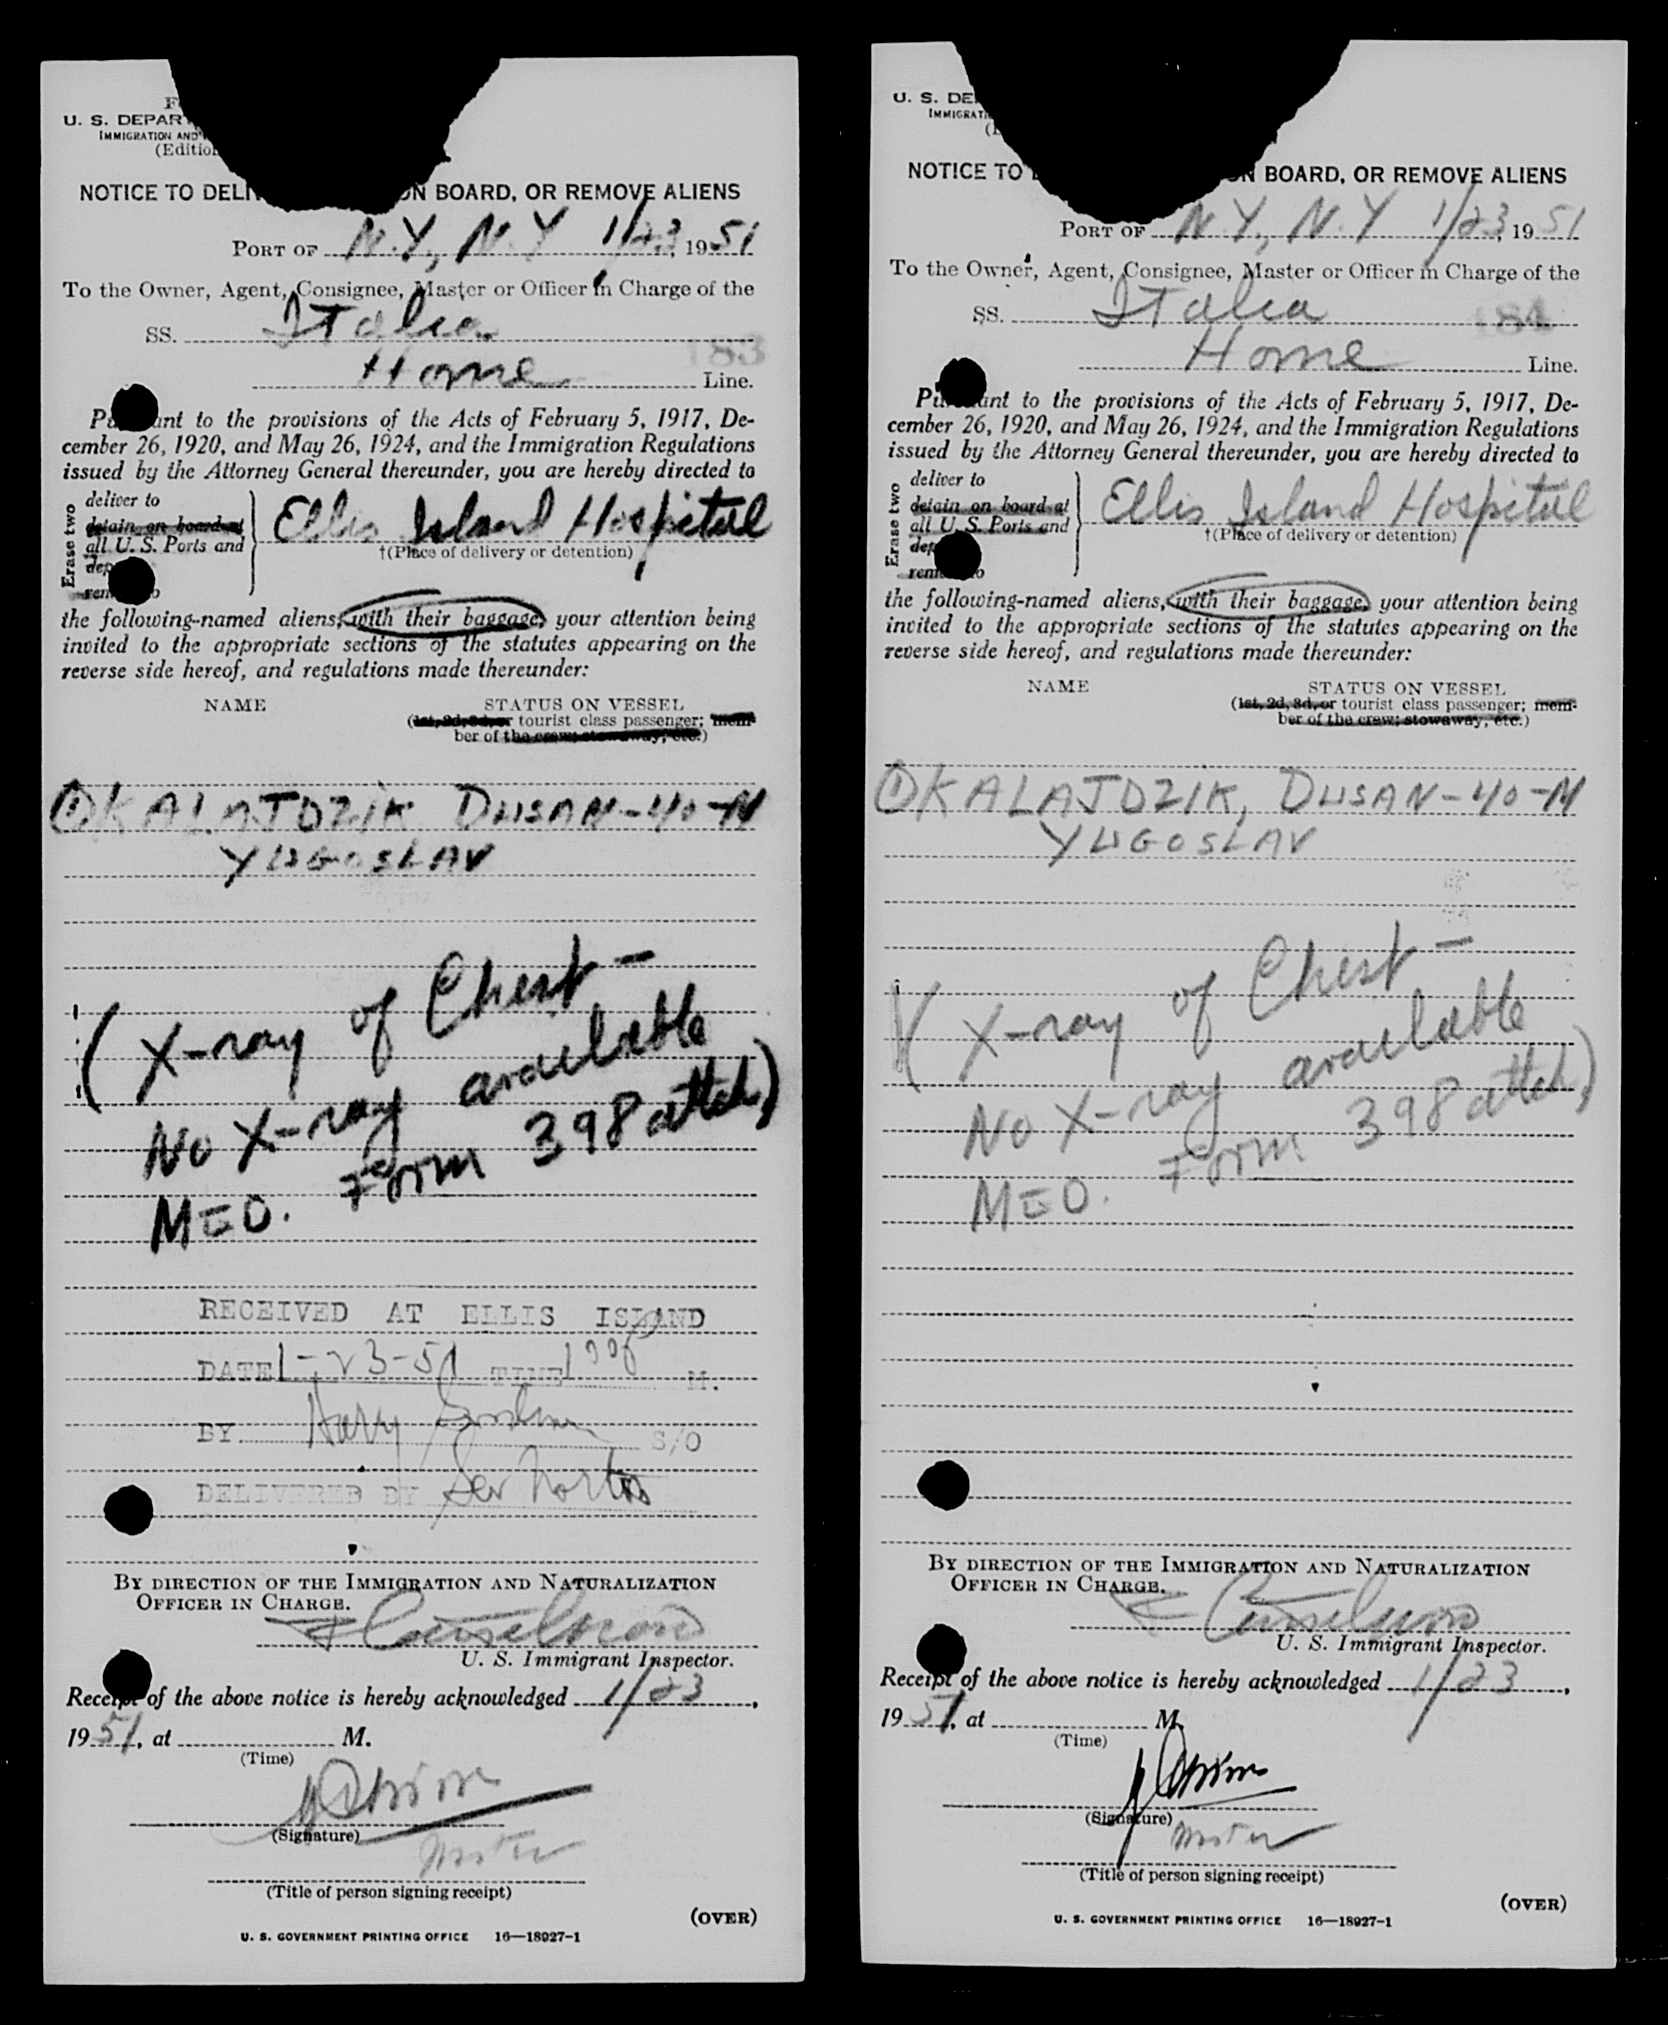 U. S. DEPAR
IMMIGRATION AND
(Edition
NOTICE TO DELI ON BOARD, OR REMOVE ALIENS
PORT OF N.Y., N.Y 1/23, 1951
To the Owner, Agent, Consignee, Master or Officer in Charge of the
SS. Italia
183
Home Line.
Pu ant to the provisions of the Acts of February 5, 1917, De-
cember 26, 1920, and May 26, 1924, and the Immigration Regulations
issued by the Attorney General thereunder, you are hereby directed to
Erase two
deliver to
detain on board at
all U. S. Ports and
dep
rem o
Ellis Island Hospital
†(Place of delivery or detention)
the following-named aliens, with their baggage, your attention being
invited to the appropriate sections of the statutes appearing on the
reverse side hereof, and regulations made thereunder:
NAME STATUS ON VESSEL
(1st, 2d, 3d, or tourist class passenger; mem-
ber of the crew; stowaway, etc.)
① KALAJDZIK DUSAN-40-M
YUGOSLAV
( X-ray of Chest —
No X-ray available
MED. Form 398 attch)
RECEIVED AT ELLIS ISLAND
DATE 1-23-51 TIME M.
BY Harry S/O
DELIVERED BY
BY DIRECTION OF THE IMMIGRATION AND NATURALIZATION
OFFICER IN CHARGE.
U. S. Immigrant Inspector.
Receipt of the above notice is hereby acknowledged 1/23,
1951, at M.
(Time)
(Signature)
(Title of person signing receipt)
(OVER)
U. S. GOVERNMENT PRINTING OFFICE 16—18927-1
U. S. DE
IMMIGRATI
NOTICE TO ON BOARD, OR REMOVE ALIENS
PORT OF N.Y., N.Y 1/23, 1951
To the Owner, Agent, Consignee, Master or Officer in Charge of the
SS. Italia
184
Home Line.
Pu ant to the provisions of the Acts of February 5, 1917, De-
cember 26, 1920, and May 26, 1924, and the Immigration Regulations
issued by the Attorney General thereunder, you are hereby directed to
Erase two
deliver to
detain on board at
all U. S. Ports and
dep
rem o
Ellis Island Hospital
†(Place of delivery or detention)
the following-named aliens, with their baggage, your attention being
invited to the appropriate sections of the statutes appearing on the
reverse side hereof, and regulations made thereunder:
NAME STATUS ON VESSEL
(1st, 2d, 3d, or tourist class passenger; mem-
ber of the crew; stowaway, etc.)
① KALAJDZIK, DUSAN-40-M
YUGOSLAV
( X-ray of Chest —
No X-ray available
MED. Form 398 attch)
BY DIRECTION OF THE IMMIGRATION AND NATURALIZATION
OFFICER IN CHARGE.
U. S. Immigrant Inspector.
Receipt of the above notice is hereby acknowledged 1/23,
1951, at M.
(Time)
(Signature)
(Title of person signing receipt)
(OVER)
U. S. GOVERNMENT PRINTING OFFICE 16—18927-1